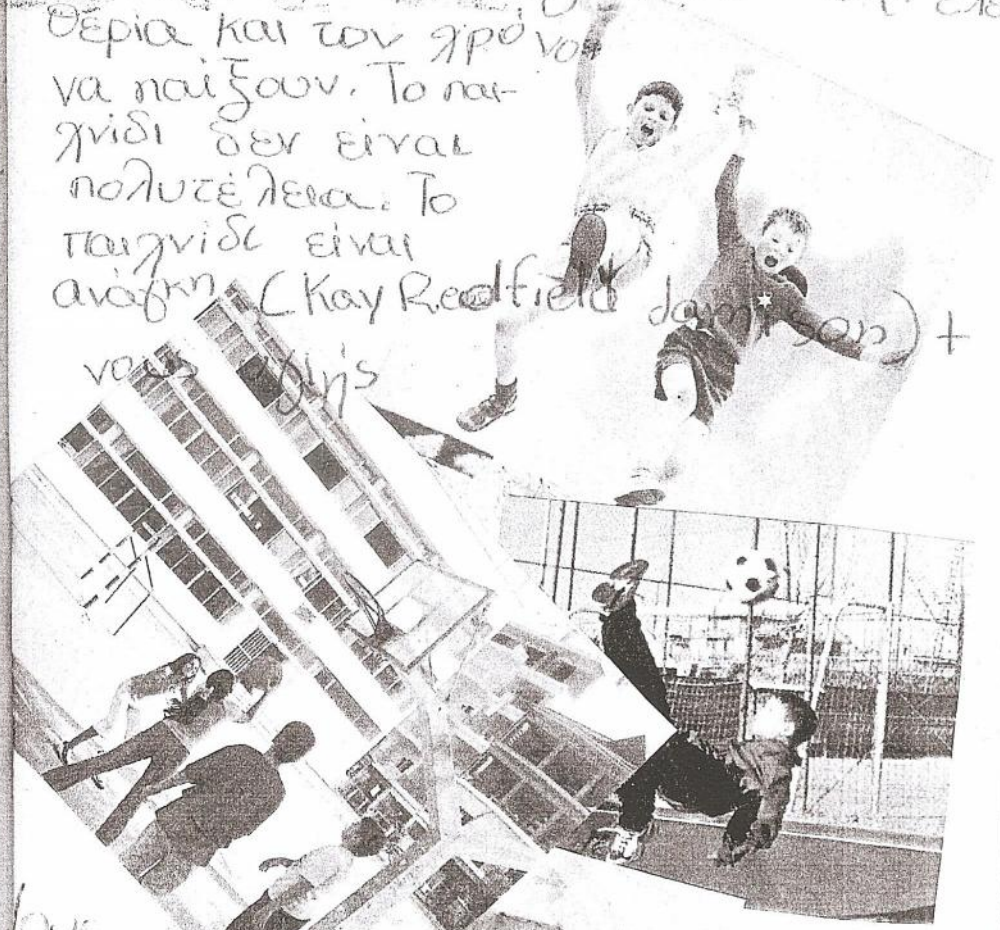 θερία και τον χρόνο
να παίξουν. Το παι-
χνίδι δεν είναι
πολυτέλεια. Το
παιχνίδι είναι
ανάγκη. (Kay Redfield Jamison) +
νους υγιής